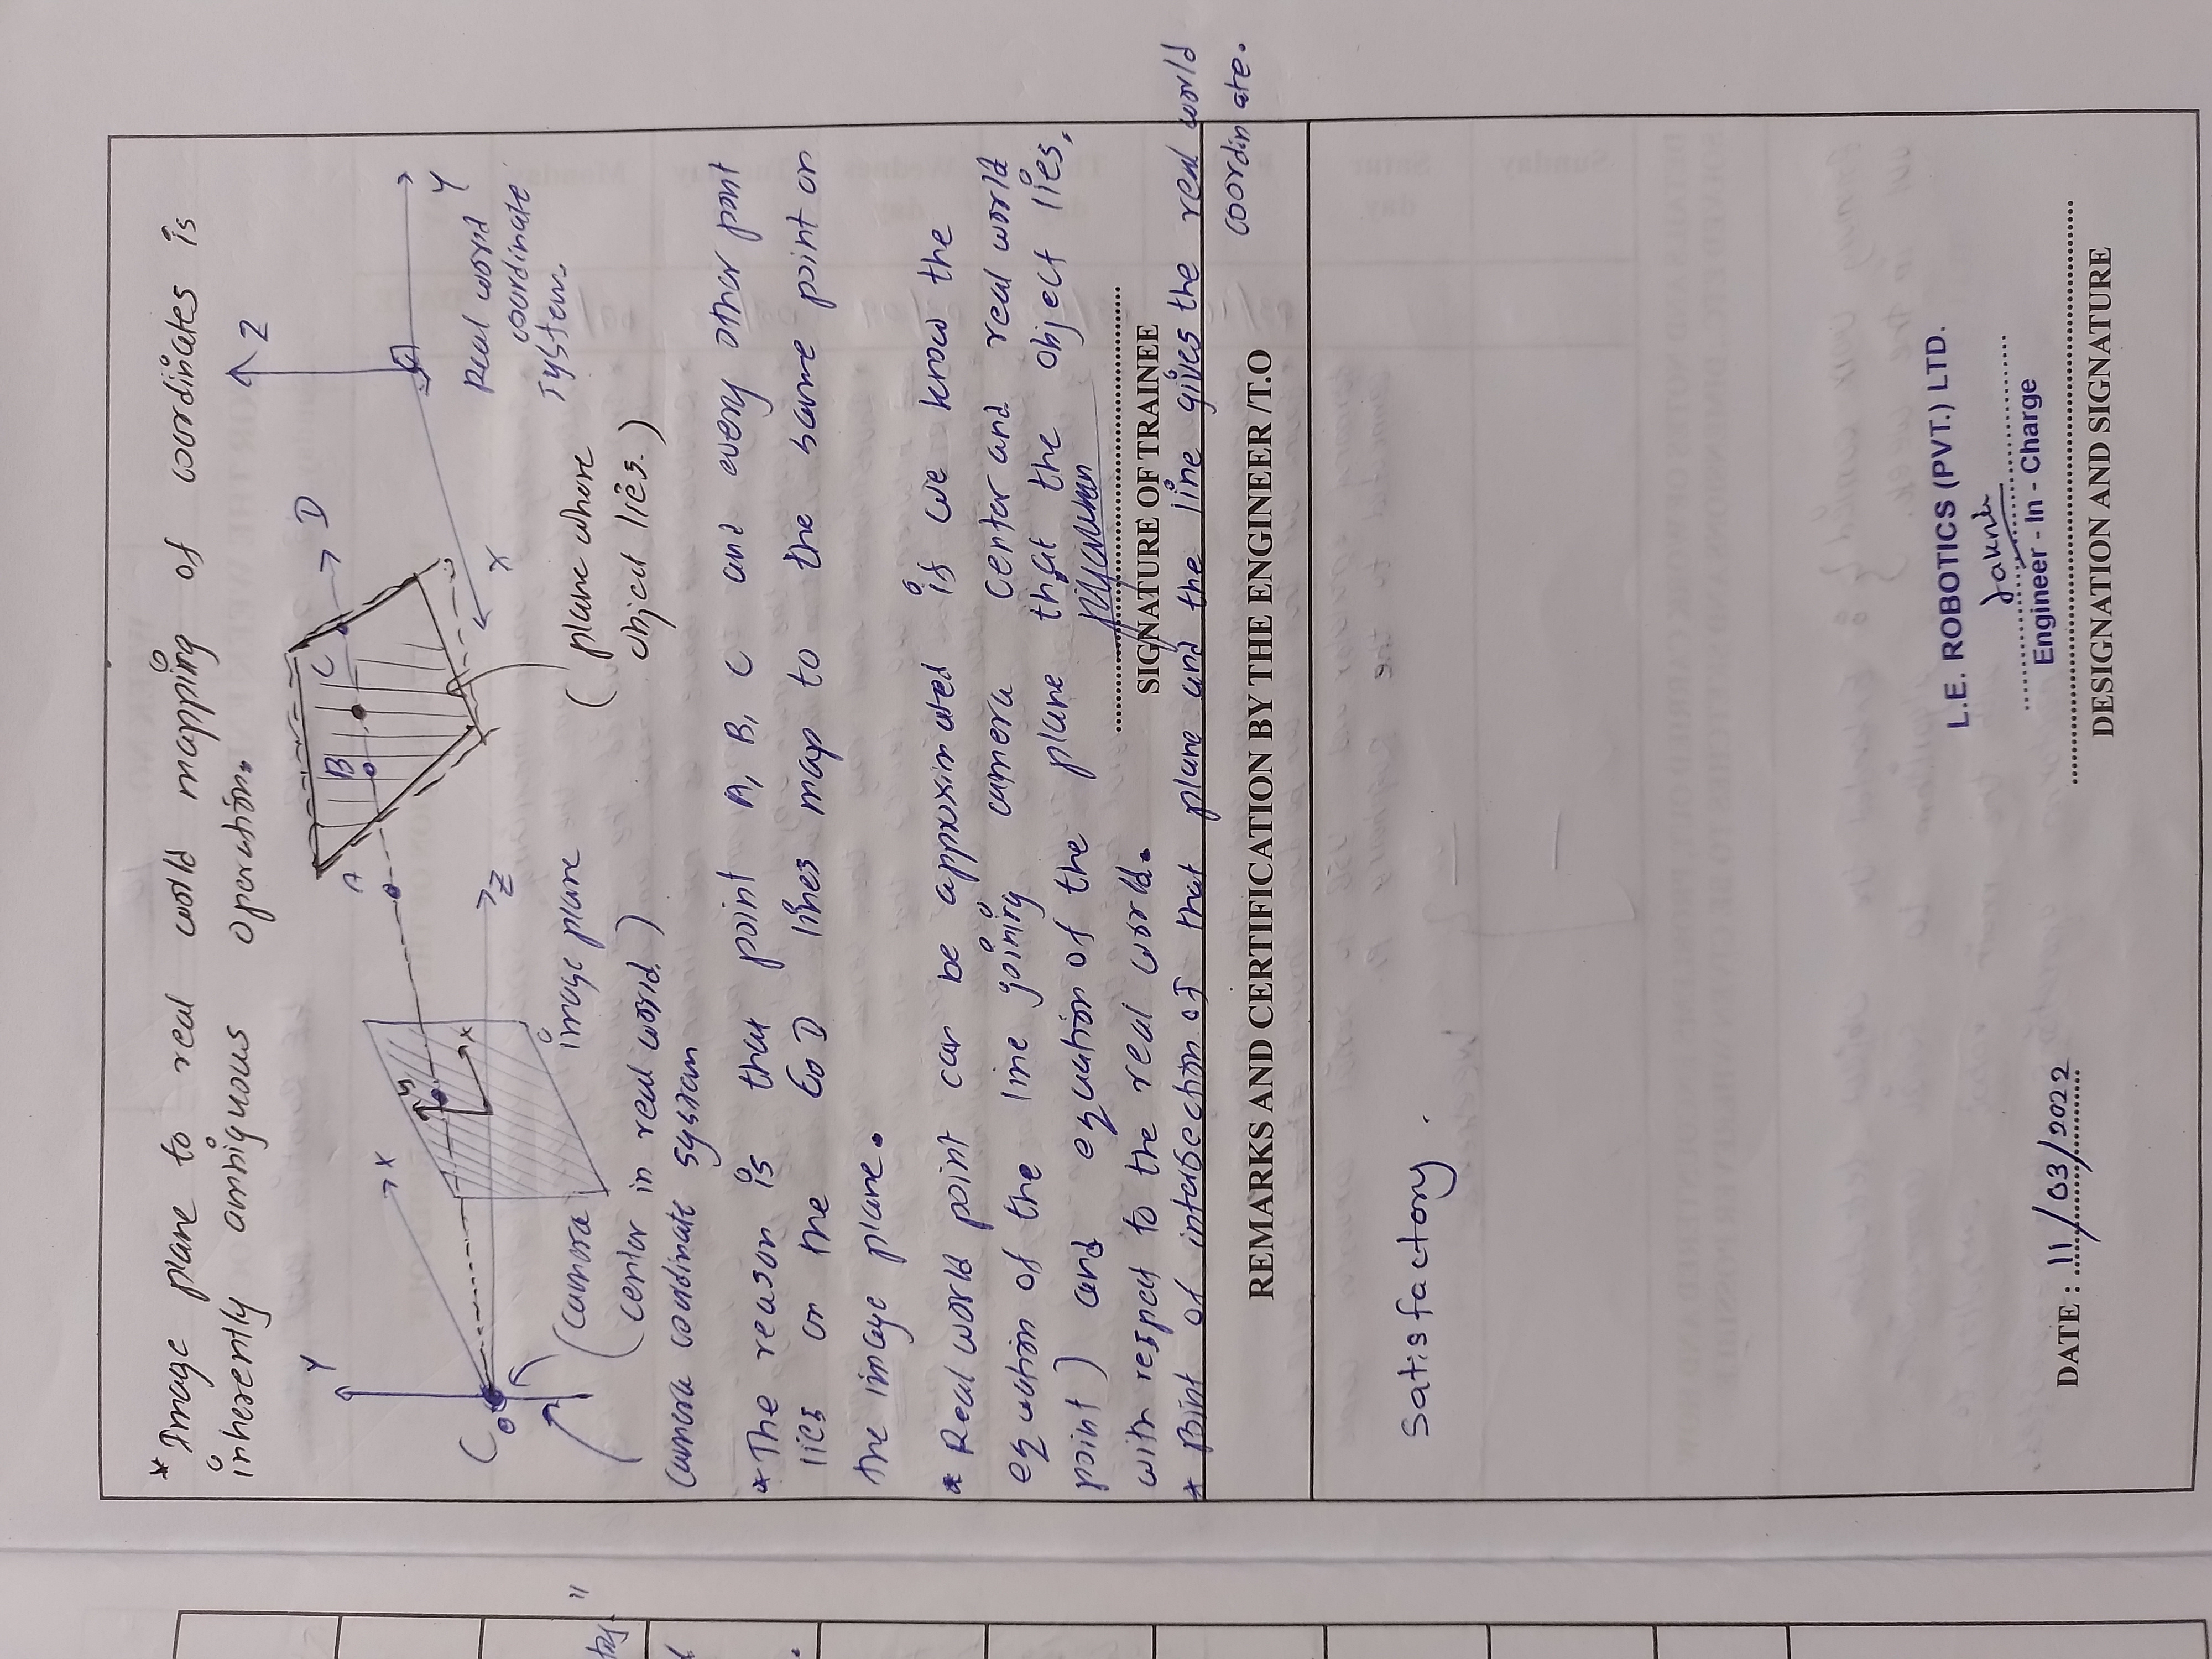 * Image plane to real world mapping of coordinates is
inherently ambiguous operation.
Z
Y
X
A
B
C
D
y
x
C
Z
Y
X
Real world
coordinate
system.
(camera
center in real world.)
image plane
( plane where
object lies. )
camera coordinate system
* The reason is that point A, B, C and every other point
lies on the CoD lines map to the same point on
the image plane.
* Real world point can be approximated if we know the
equation of the line joining camera center and real world
point) and equation of the plane that the object lies,
with respect to the real world.
SIGNATURE OF TRAINEE
* Point of intersection of that plane and the line gives the real world
coordinate.
REMARKS AND CERTIFICATION BY THE ENGINEER /T.O
Satisfactory.
L.E. ROBOTICS (PVT.) LTD.
Engineer - In - Charge
DATE : 11/03/2022
DESIGNATION AND SIGNATURE